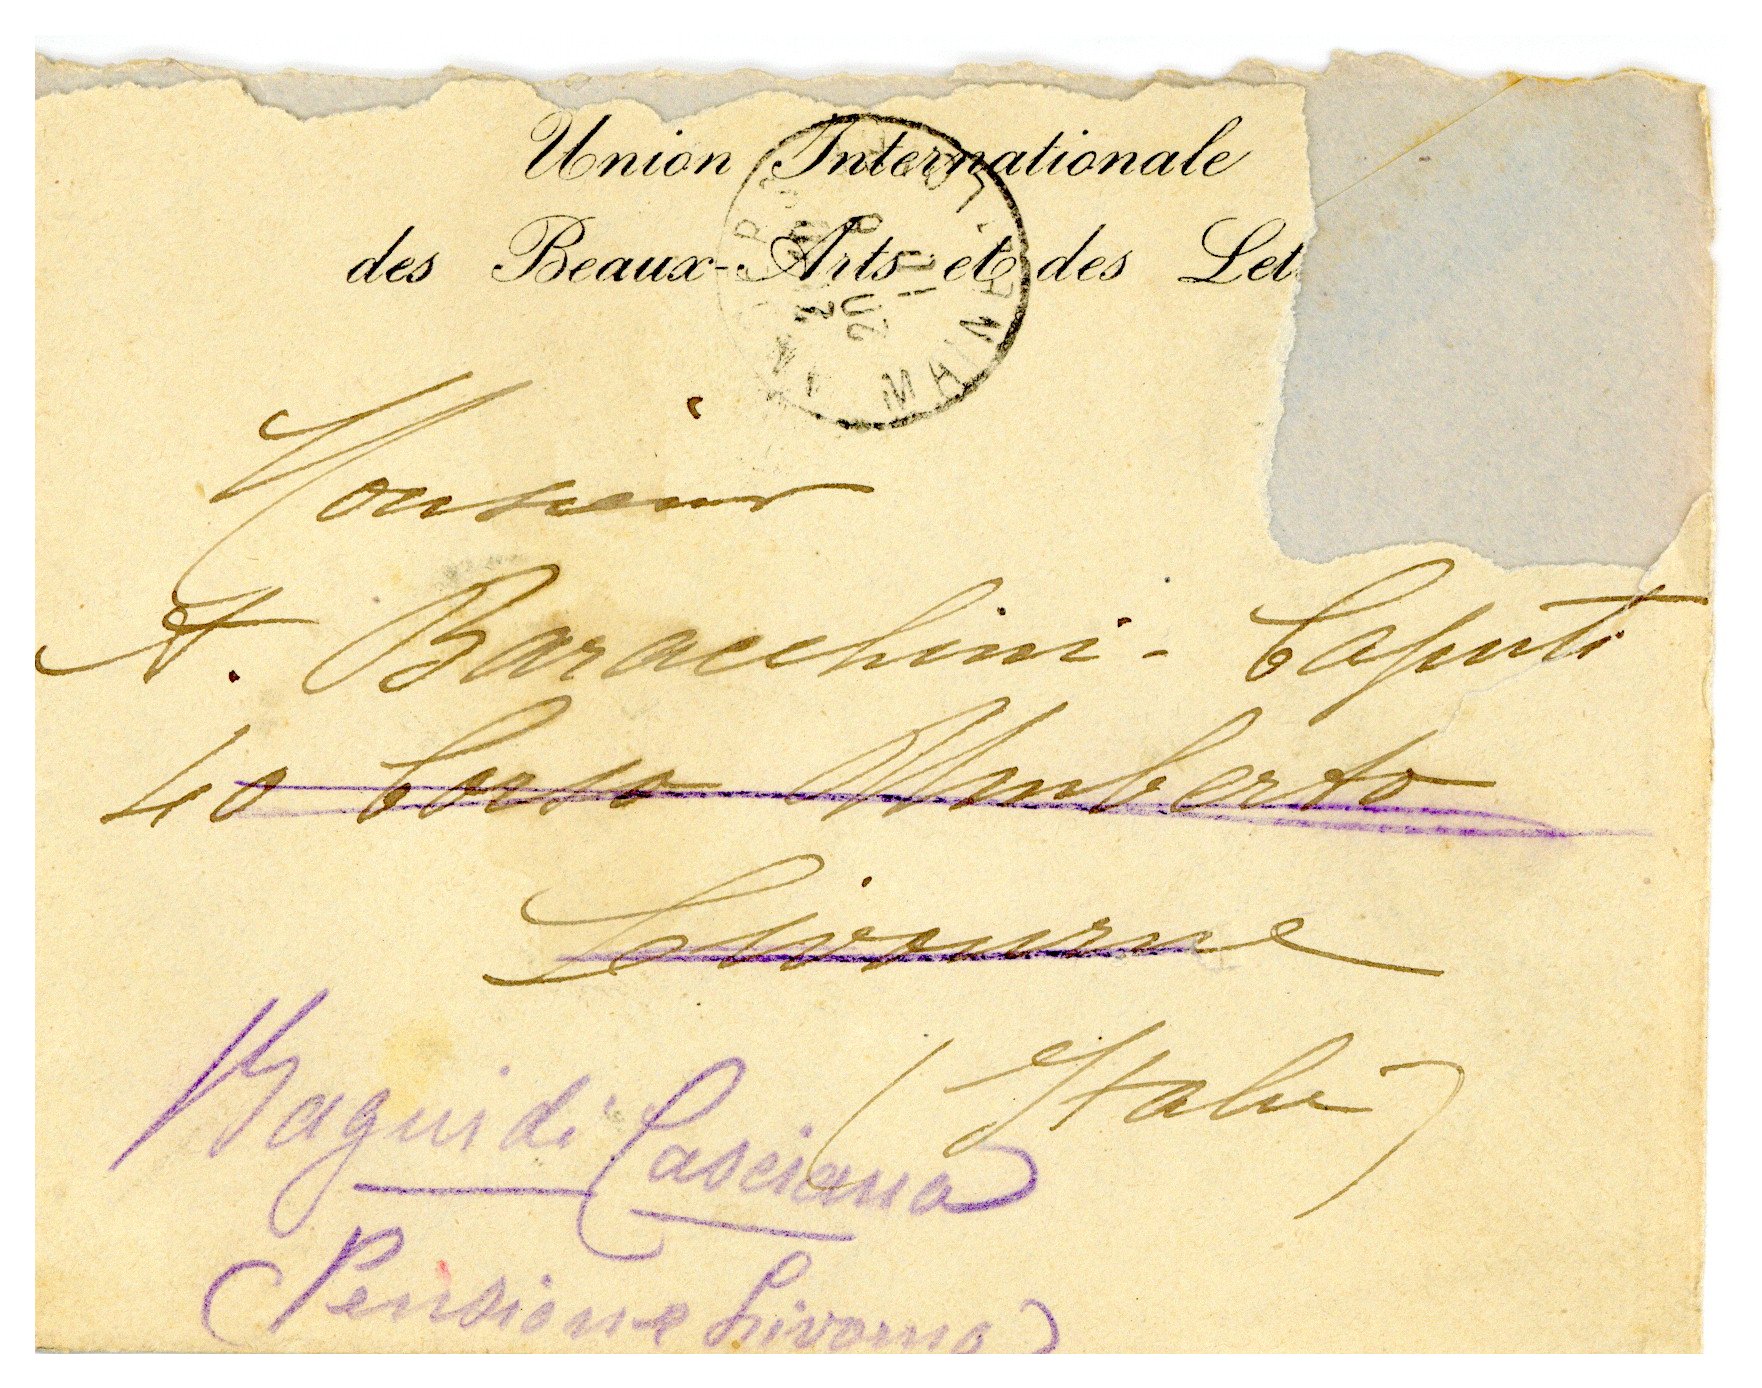 Union Internationale
des Beaux-Arts et des Let
MAINE
20
Monsieur
A. Baracchini-Caputi
40 Corso Umberto
Livourne
(Italie)
Bagni di Casciana
(Pensione Livorno)